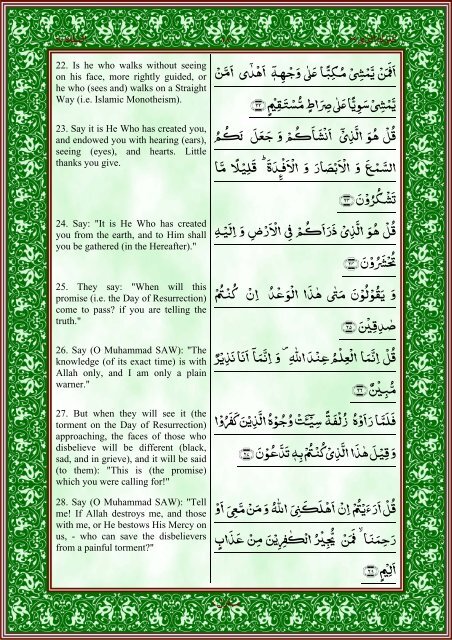 22. Is he who walks without seeing
on his face, more rightly guided, or
he who (sees and) walks on a Straight
Way (i.e. Islamic Monotheism).
اَفَمَنْ يَّمْشِىْ مُكِبًّا عَلٰى وَجْهِهٖۤ اَهْدٰٓى اَمَّنْ
يَّمْشِىْ سَوِيًّا عَلٰى صِرَاطٍ مُّسْتَقِيْمٍ ﴿۲۲﴾
23. Say it is He Who has created you,
and endowed you with hearing (ears),
seeing (eyes), and hearts. Little
thanks you give.
قُلْ هُوَ الَّذِىْۤ اَنْشَاَكُمْ وَ جَعَلَ لَكُمُ
السَّمْعَ وَ الْاَبْصَارَ وَ الْاَفْـِٕدَةَ ؕ قَلِيْلًا مَّا
تَشْكُرُوْنَ ﴿۲۳﴾
24. Say: "It is He Who has created
you from the earth, and to Him shall
you be gathered (in the Hereafter)."
قُلْ هُوَ الَّذِىْ ذَرَاَكُمْ فِى الْاَرْضِ وَ اِلَيْهِ
تُحْشَرُوْنَ ﴿۲۴﴾
25. They say: "When will this
promise (i.e. the Day of Resurrection)
come to pass? if you are telling the
truth."
وَ يَقُوْلُوْنَ مَتٰى هٰذَا الْوَعْدُ اِنْ كُنْتُمْ
صٰدِقِيْنَ ﴿۲۵﴾
26. Say (O Muhammad SAW): "The
knowledge (of its exact time) is with
Allah only, and I am only a plain
warner."
قُلْ اِنَّمَا الْعِلْمُ عِنْدَ اللّٰهِ ۪ وَ اِنَّمَاۤ اَنَا نَذِيْرٌ
مُّبِيْنٌ ﴿۲۶﴾
27. But when they will see it (the
torment on the Day of Resurrection)
approaching, the faces of those who
disbelieve will be different (black,
sad, and in grieve), and it will be said
(to them): "This is (the promise)
which you were calling for!"
فَلَمَّا رَاَوْهُ زُلْفَةً سِيْٓـَٔتْ وُجُوْهُ الَّذِيْنَ كَفَرُوْا
وَ قِيْلَ هٰذَا الَّذِىْ كُنْتُمْ بِهٖ تَدَّعُوْنَ ﴿۲۷﴾
28. Say (O Muhammad SAW): "Tell
me! If Allah destroys me, and those
with me, or He bestows His Mercy on
us, - who can save the disbelievers
from a painful torment?"
قُلْ اَرَءَيْتُمْ اِنْ اَهْلَكَنِىَ اللّٰهُ وَ مَنْ مَّعِىَ اَوْ
رَحِمَنَا ۙ فَمَنْ يُّجِيْرُ الْكٰفِرِيْنَ مِنْ عَذَابٍ
اَلِيْمٍ ﴿۲۸﴾